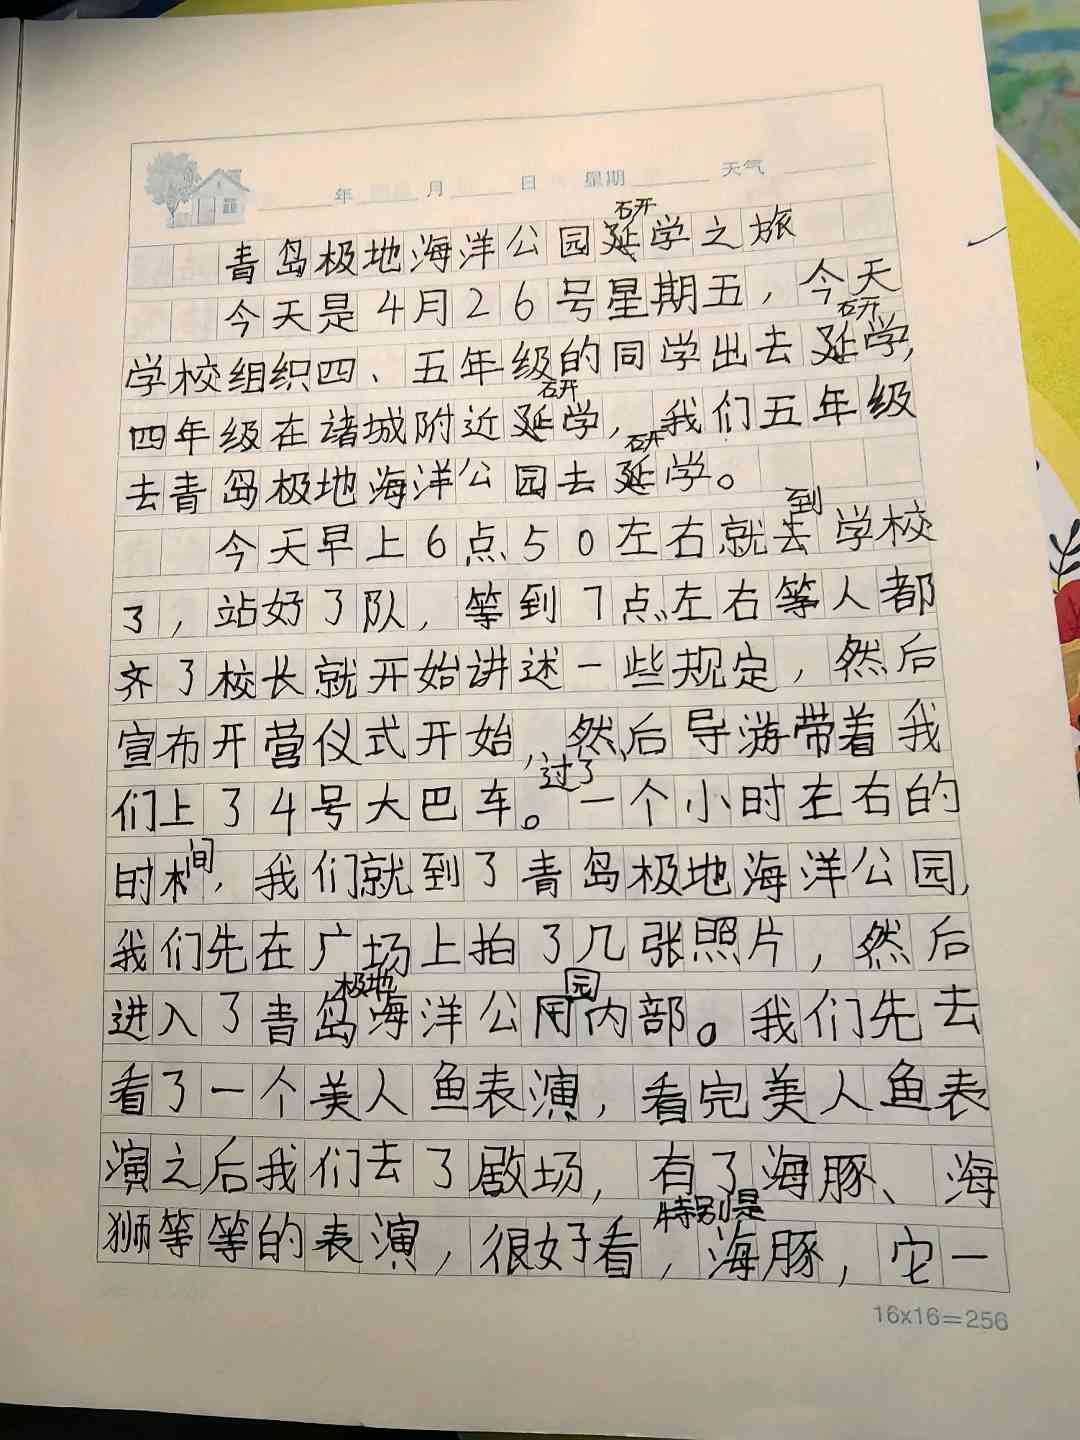 年 月 日 星期 天气
青岛极地海洋公园研学之旅
今天是4月26号星期五，今天
学校组织四、五年级的同学出去研学，
四年级在诸城附近研学，我们五年级
去青岛极地海洋公园去研学。
今天早上6点50左右就到学校
了，站好了队，等到7点左右等人都
齐了校长就开始讲述一些规定，然后
宣布开营仪式开始，然后导游带着我
们上了4号大巴车。过了一个小时左右的
时间，我们就到了青岛极地海洋公园，
我们先在广场上拍了几张照片，然后
进入了青岛极地海洋公园内部。我们先去
看了一个美人鱼表演，看完美人鱼表
演之后我们去了剧场，有了海豚、海
狮等等的表演，很好看，特别是海豚，它一
16x16=256